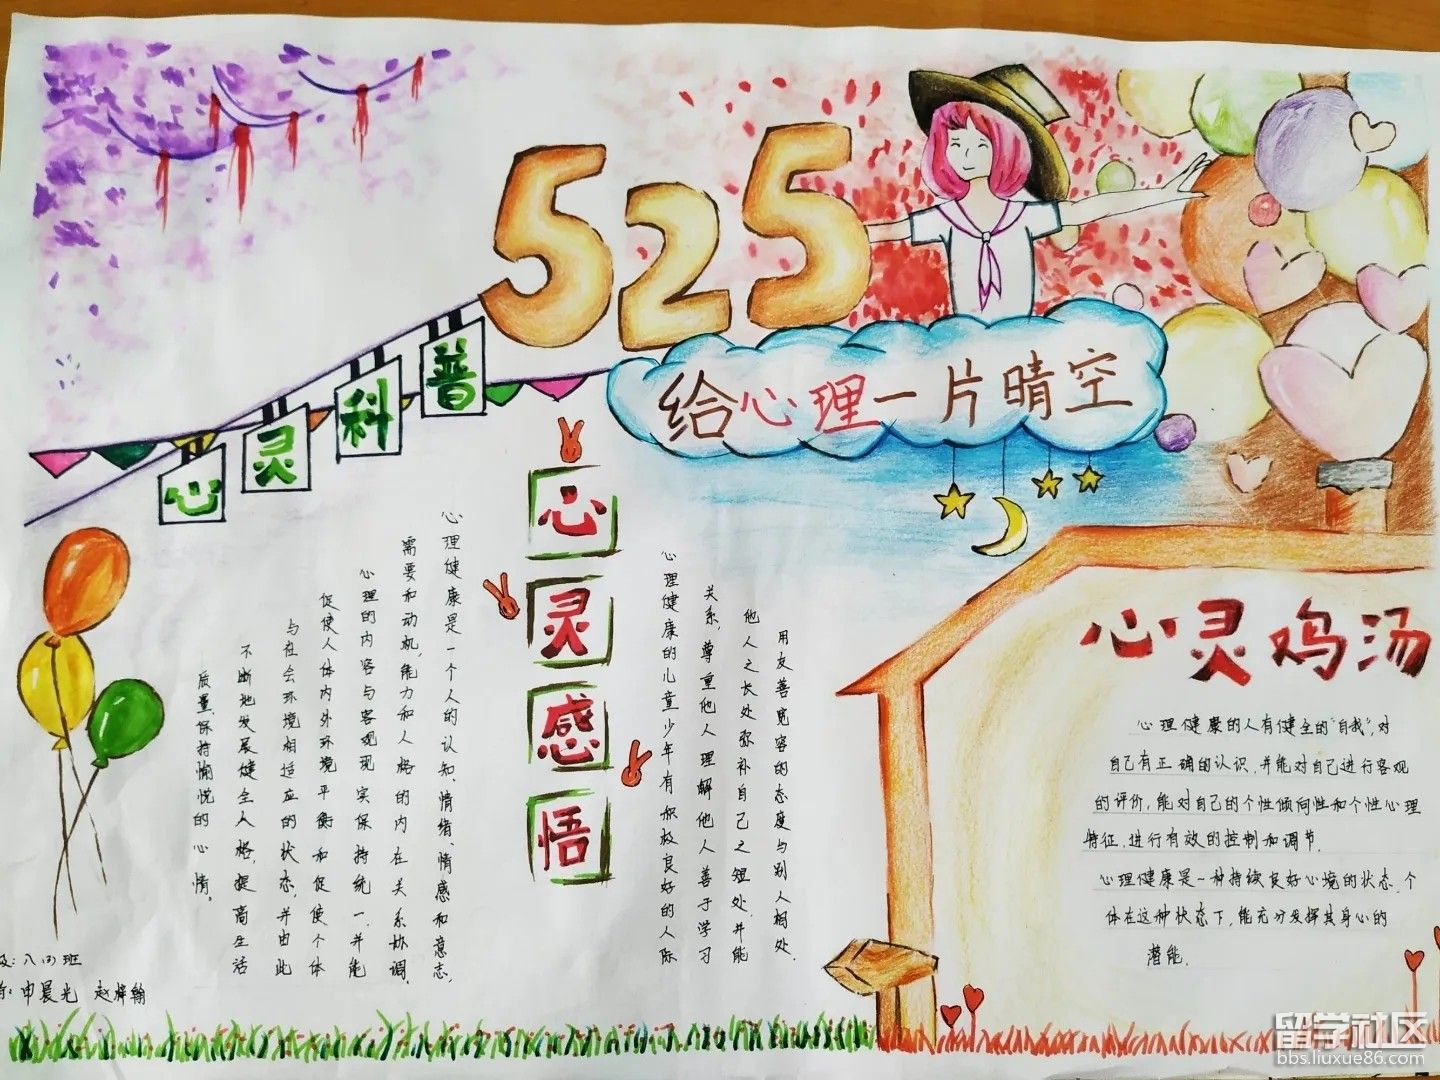 525
给心理一片晴空
心灵科普
心理健康是一个人的认知、情绪、情感和意志,
需要和动机,能力和人格的内在关系协调,
心理的内容与客观现实保持统一,并能
促使人体内外环境平衡和促使个体
与社会环境相适应的状态,并由此
不断地发展健全人格,提高生活
质量,保持愉悦的心情。
心灵感悟
心理健康的儿童少年有积极良好的人际
关系,尊重他人理解他人善于学习
他人之长处弥补自己之短处,并能
用友善宽容的态度与别人相处.
心灵鸡汤
心理健康的人有健全的"自我",对
自己有正确的认识,并能对自己进行客观
的评价,能对自己的个性倾向性和个性心理
特征,进行有效的控制和调节.
心理健康是一种持续良好心境的状态,个
体在这种状态下,能充分发挥其身心的
潜能.
班
申晨光 赵梓翰
留学社区
bbs.liuxue86.com